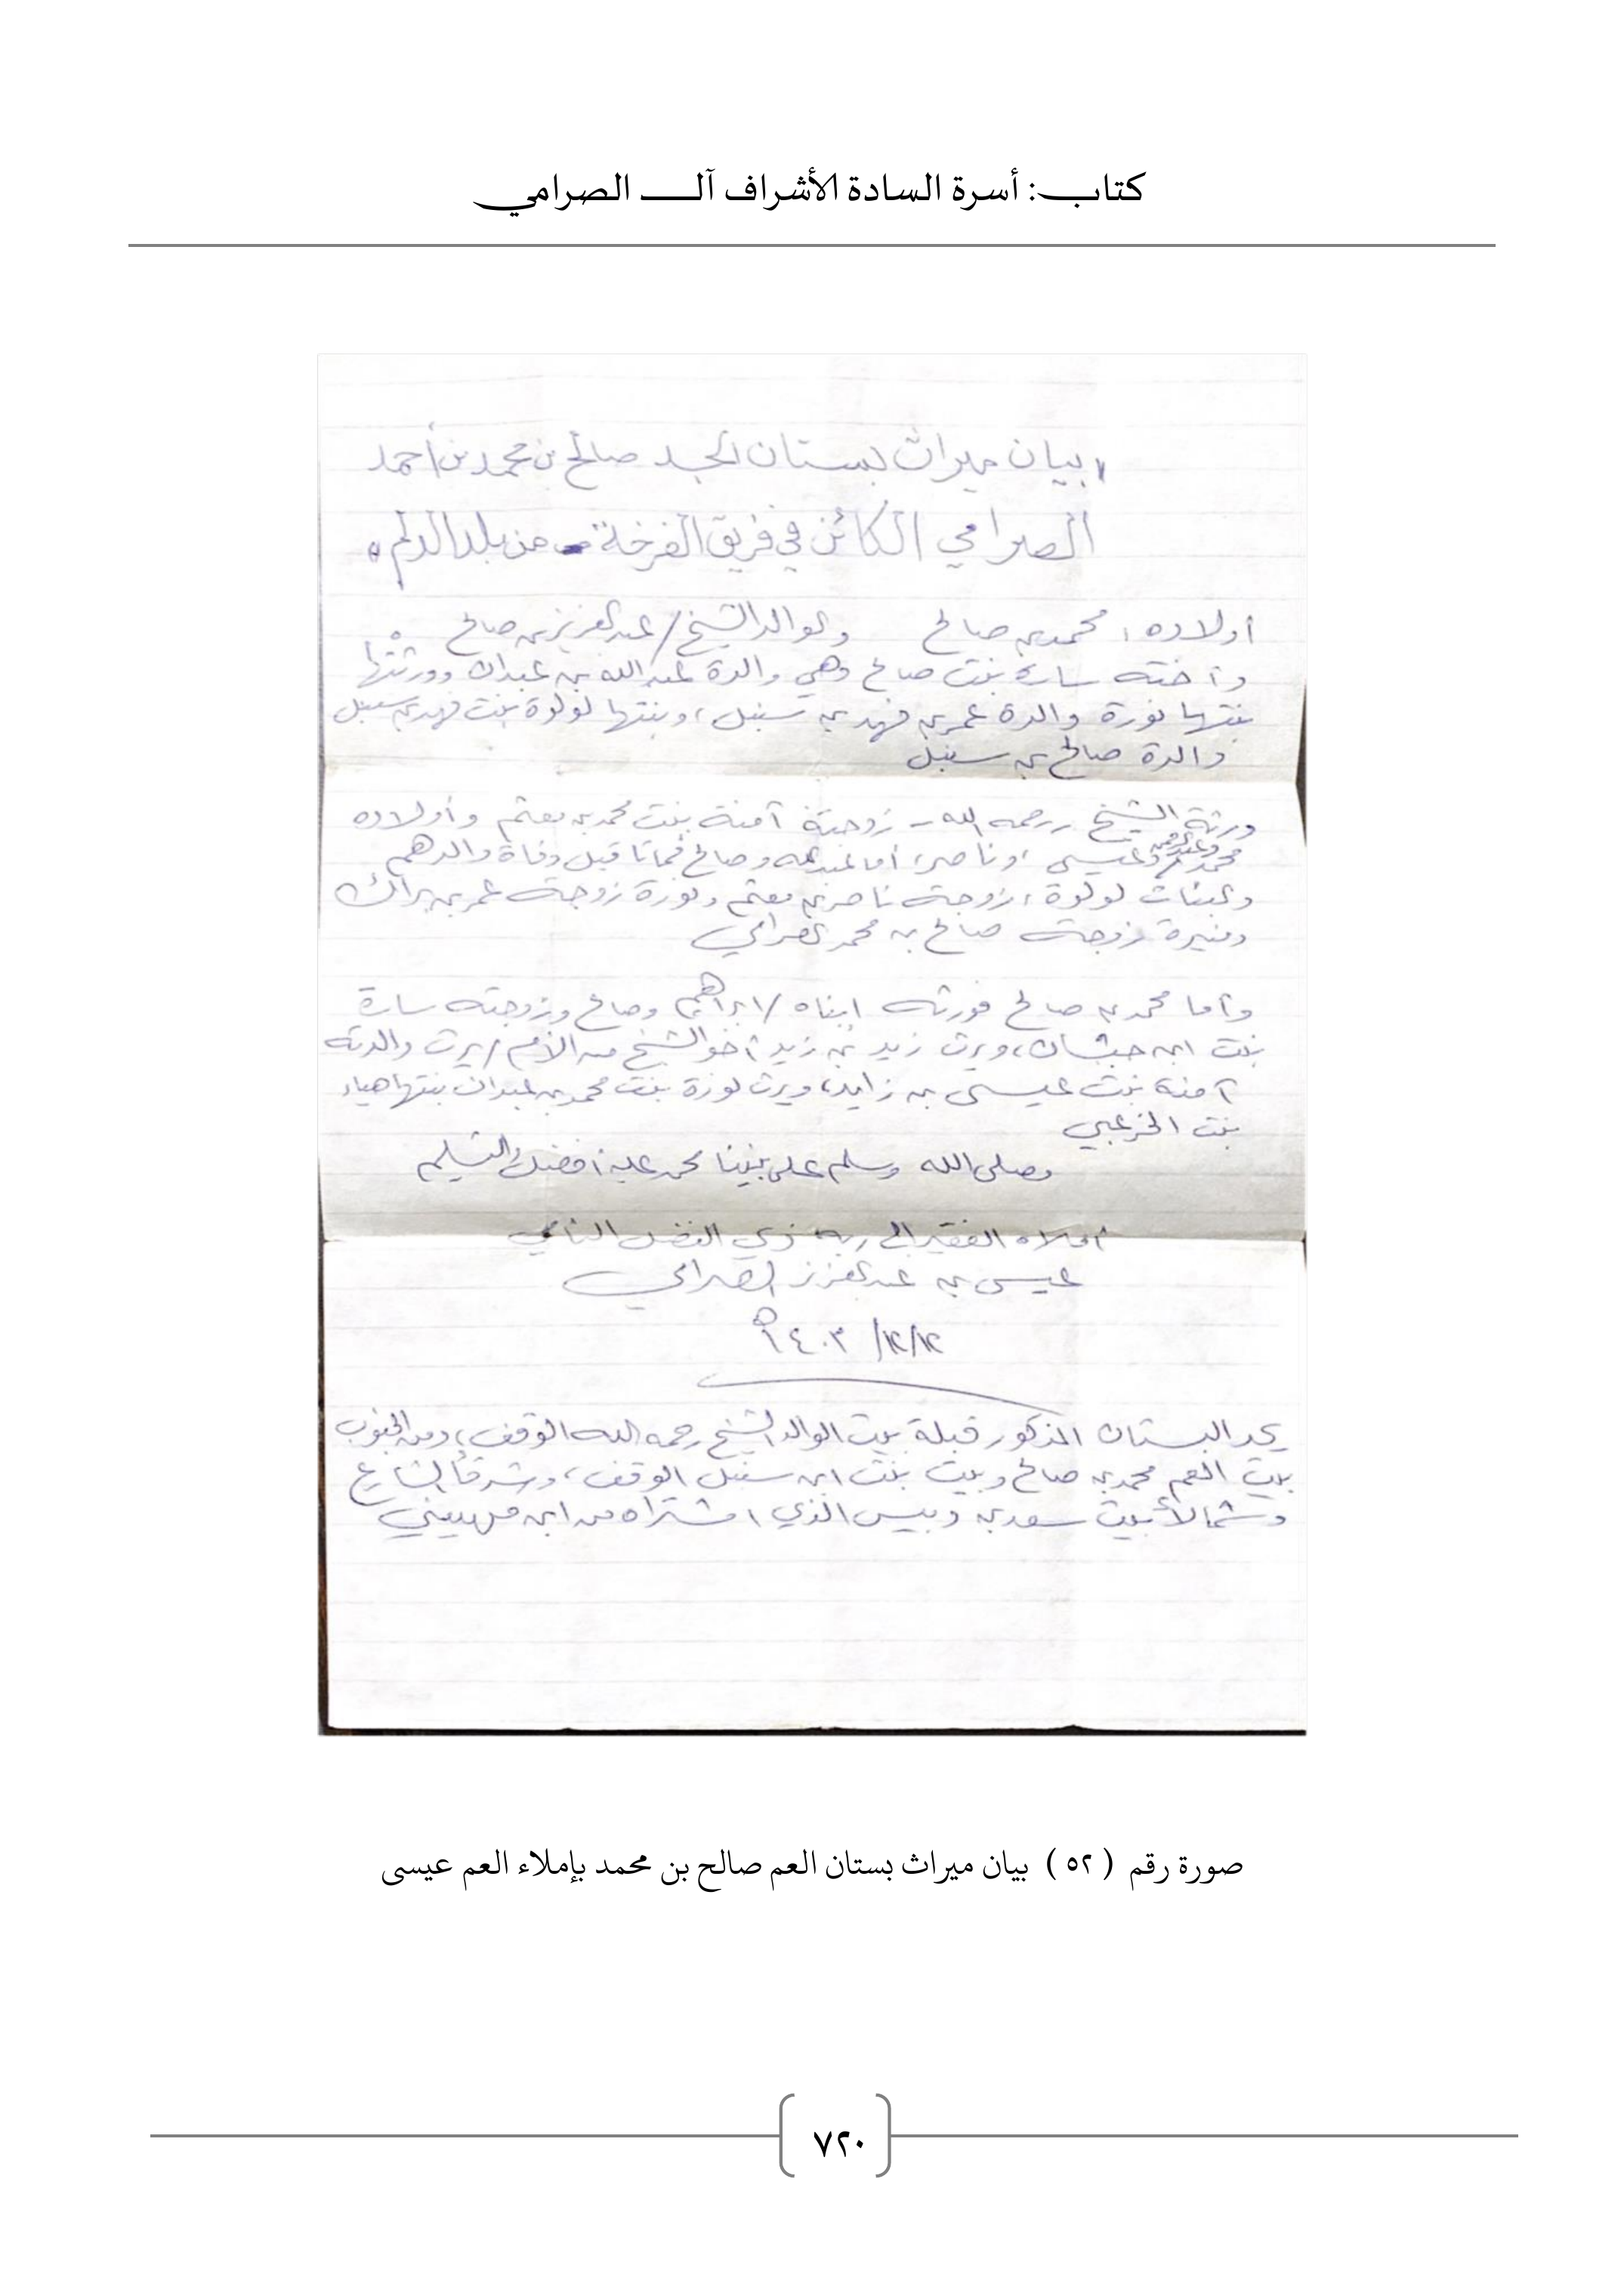 كتاب: أسرة السادة الأشراف آل الصرامي
"بيان ميراث بستان الجد صالح بن محمد بن أحمد
الصرامي الكائن في فريق الفرخة من بلد الدلم"
أولاده: محمد بن صالح والوالد الشيخ/عبدالعزيز بن صالح
وأخته سارة بنت صالح وهي والدة عبدالله بن عبدان وورثتها
بنتها نورة والدة عمر بن فهد بن سنبل، وبنتها لولوة بنت فهد بن سنبل
والدة صالح بن سنبل
ورثة الشيخ -رحمه الله- زوجته آمنة بنت محمد بن معتم وأولاده
محمد وعيسى، وناصر، أما عبدالله وصالح فماتا قبل وفاة والدهم
والبنات لولوة، زوجة ناصر بن معتم ونورة زوجة عمر بن براك
ومنيرة زوجة صالح بن محمد الصرامي
وأما محمد بن صالح فورثه ابناه /ابراهيم وصالح وزوجته سارة
بنت ابن ويرث زيد بن زيد أخو الشيخ من الأم /يرث والدته
آمنة بنت عيسى بن زايد، ويرث نورة بنت محمد بن عبدان بنتها هياء
بنت الخرعبي
وصلى الله وسلم على نبينا محمد عليه أفضل التسليم
أملاه الفقير إلى ربه ذي الفضل
عيسى بن عبدالعزيز الصرامي
١٢/١٢/ ١٤٠٣هـ
يحد البستان المذكور قبلة بيت الوالد الشيخ رحمه الله الوقف، ومن الجنوب
بيت العم محمد بن صالح وبيت بنت ابن سنبل الوقف، وشرقاً الشارع
وشمالاً بيت سعد بن الذي اشتراه من ابن
صورة رقم ( ٥٢ ) بيان ميراث بستان العم صالح بن محمد بإملاء العم عيسى
٧٢٠